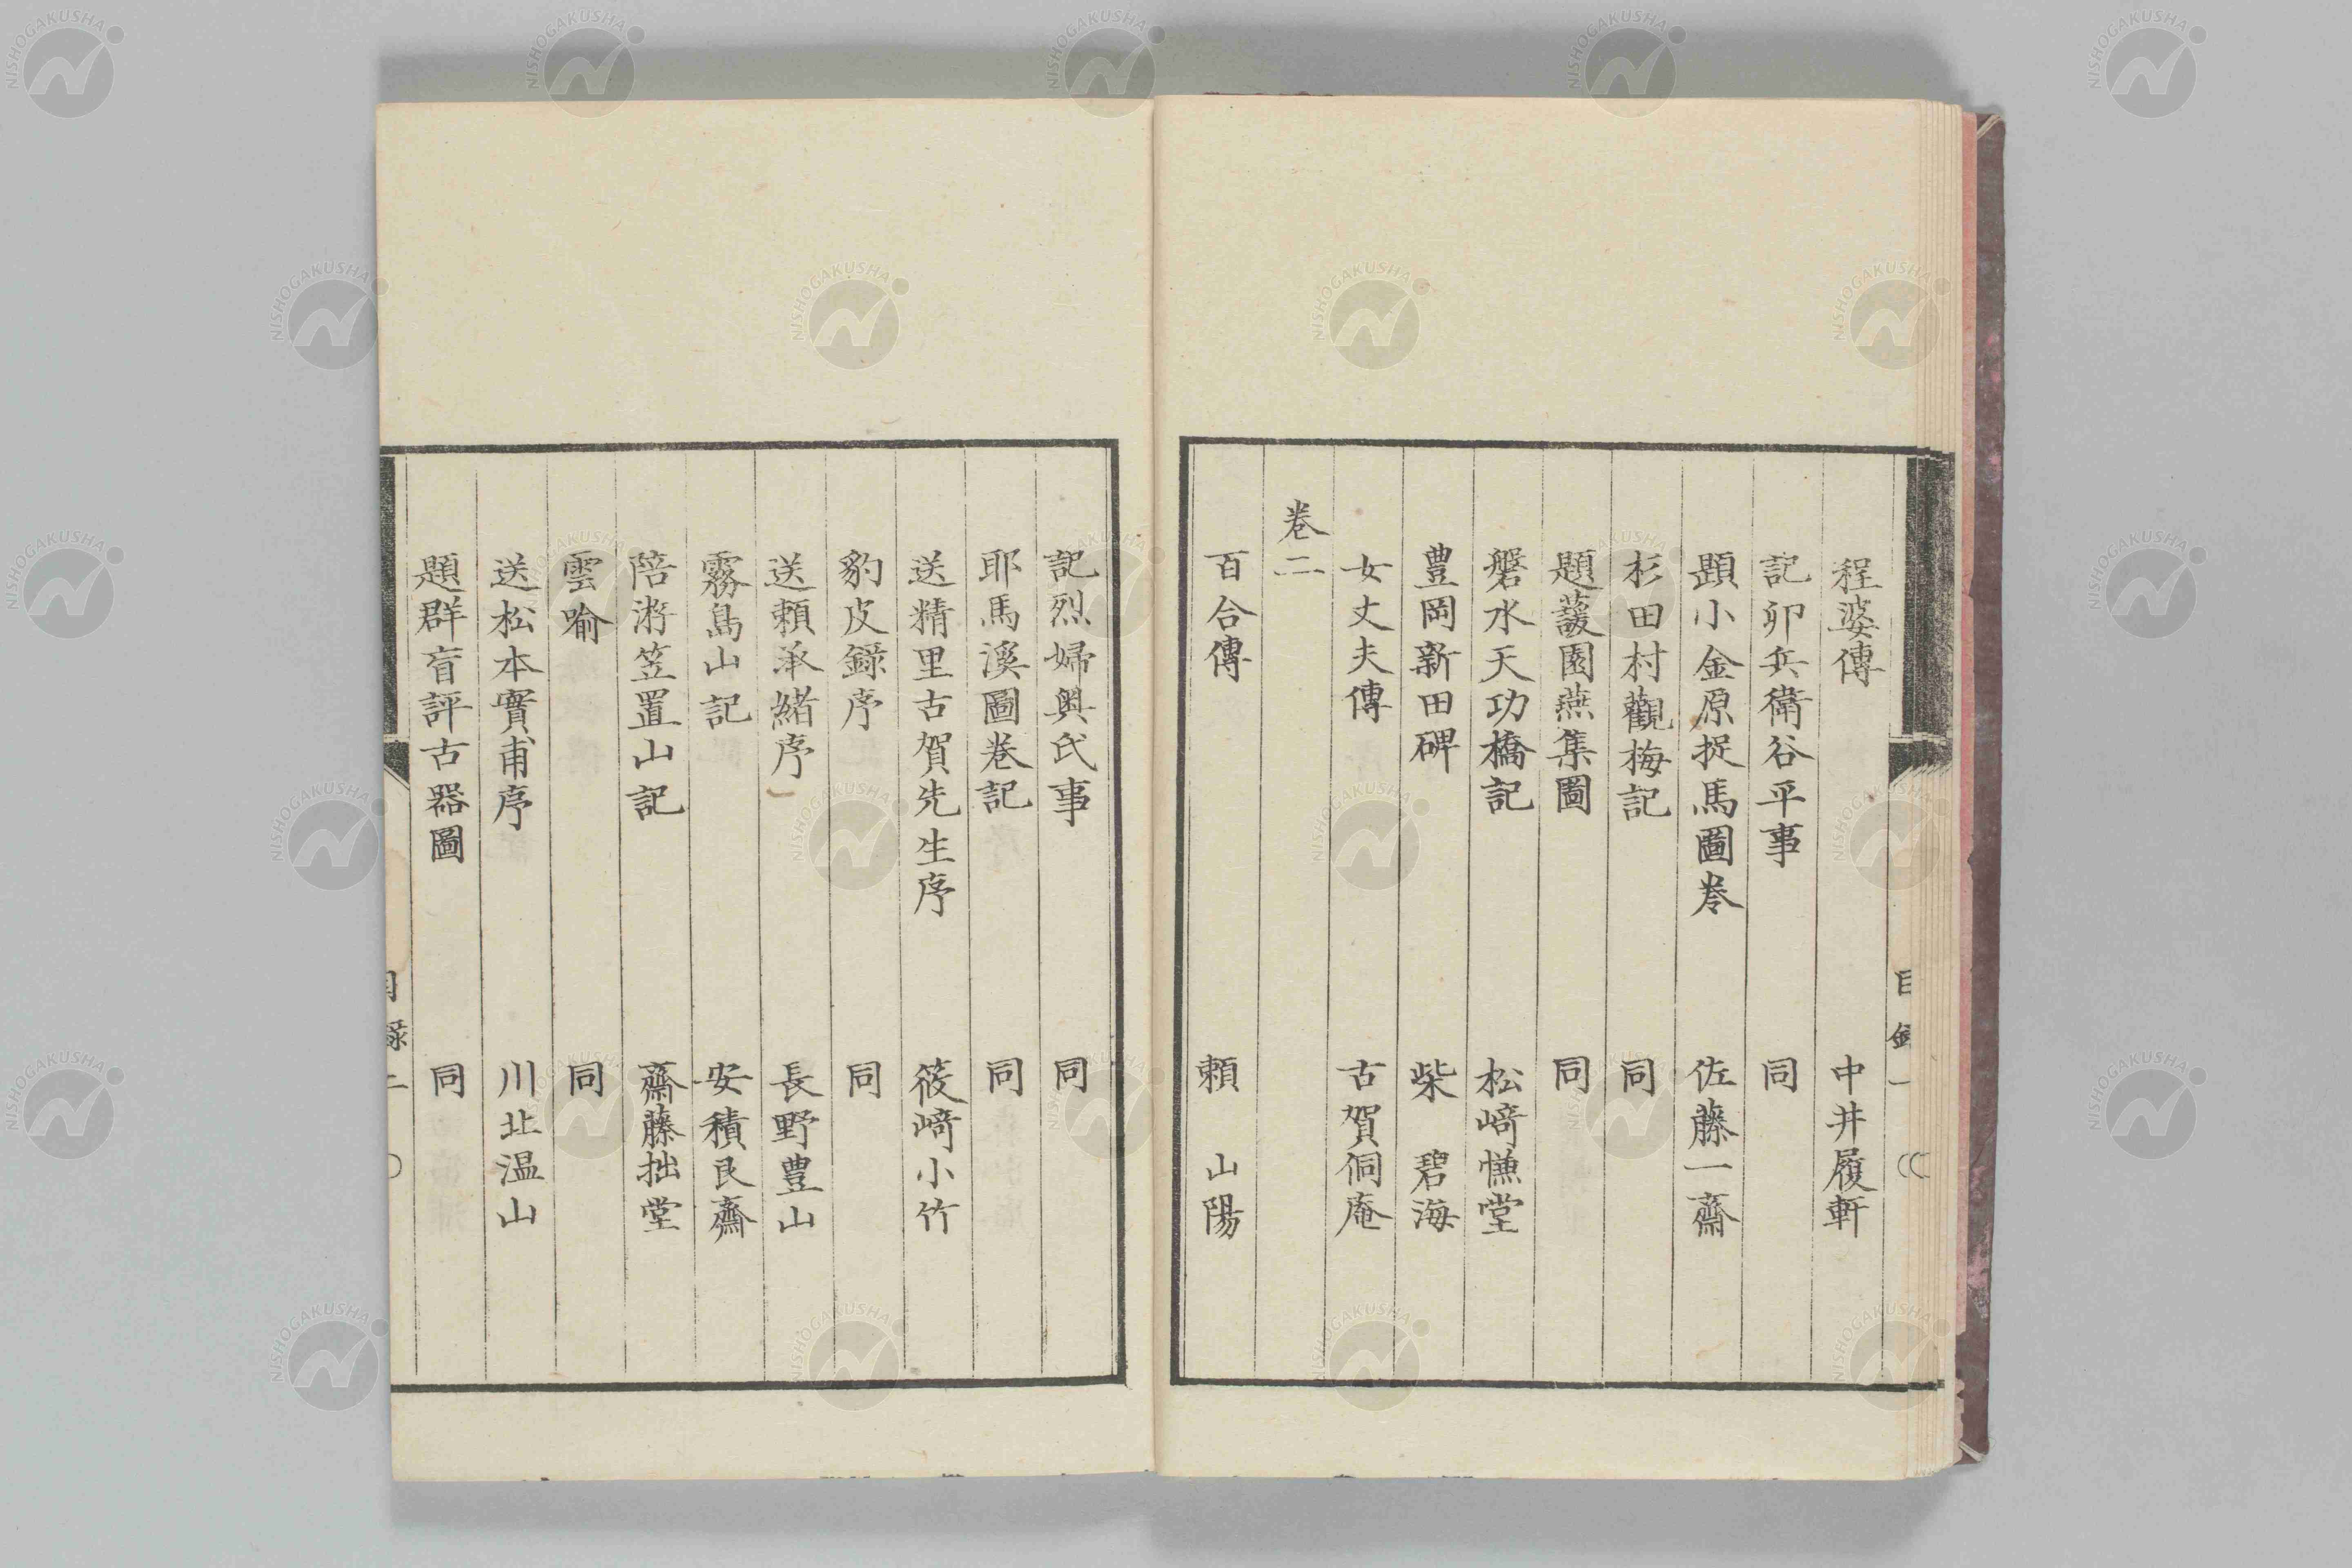 程婆傳 中井履軒
記卯兵衛谷平事 同
題小金原捉馬圖卷 佐藤一齋
杉田村觀梅記 同
題蘐園燕集圖 同
磐水天功橋記 松﨑慊堂
豊岡新田碑 柴 碧海
女丈夫傳 古賀侗庵
卷二
百合傳 賴 山陽
目錄 一
記烈婦輿氏事 同
耶馬溪圖卷記 同
送精里古賀先生序 筱﨑小竹
豹皮錄序 同
送賴承緒序 長野豊山
霧島山記 安積艮齋
陪游笠置山記 齋藤拙堂
雲喻 同
送松本實甫序 川北温山
題群盲評古器圖 同
目錄 二
NISHOGAKUSHA